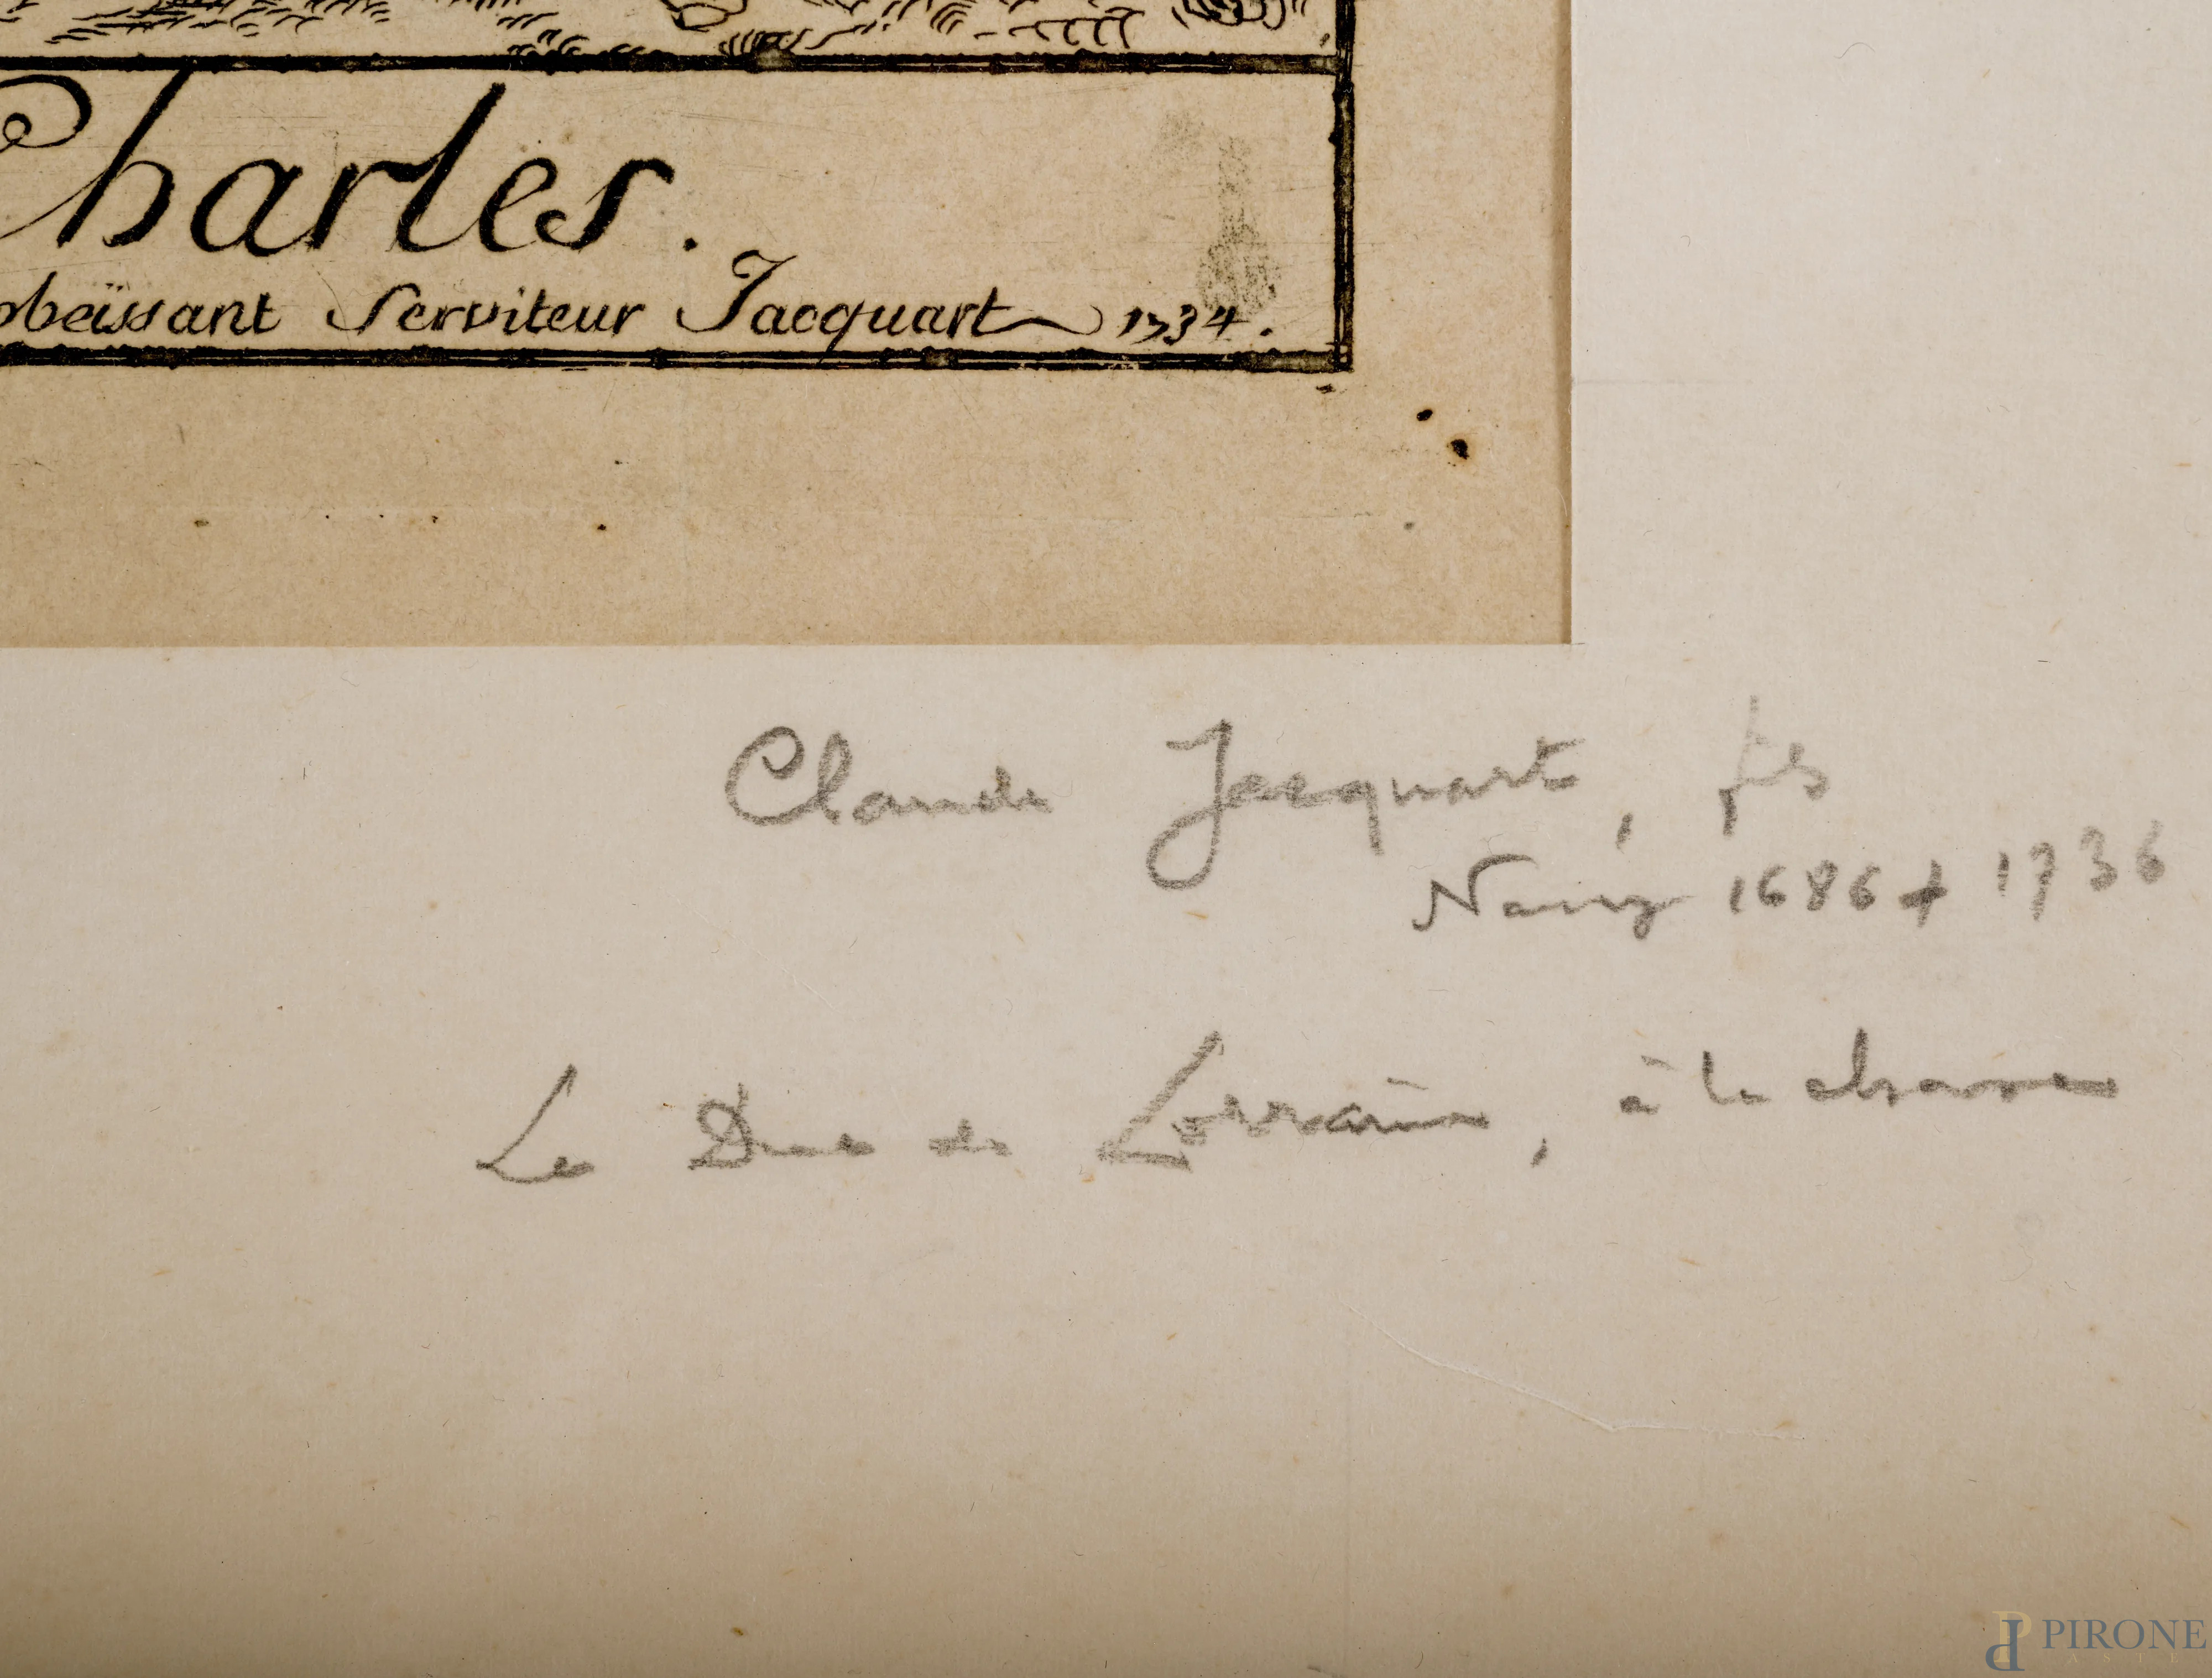 Charles.
obeïssant Serviteur Jacquart 1734.
Claude Jacquart, fils
Nancy 1686 + 1736
Le Duc de Lorraine, à la chasse
PIRONE
ASTE